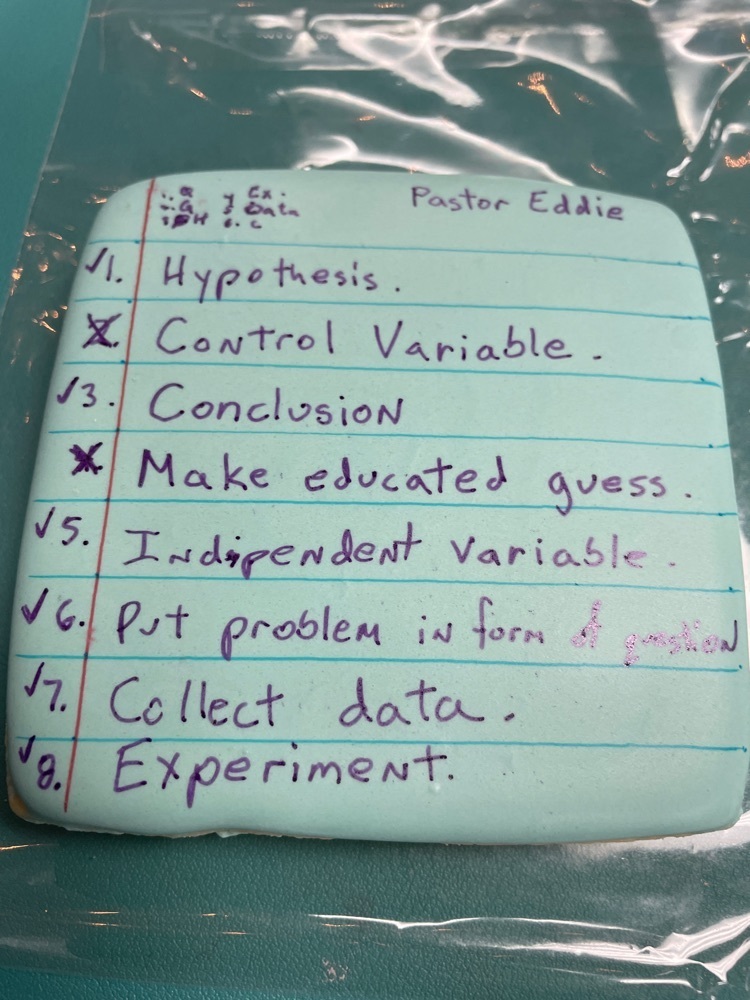 Pastor Eddie
Ex.
Data
√1. Hypothesis.
Control Variable.
√3. Conclusion
Make educated guess.
√5. Indipendent variable.
√6. Put problem in form of question
√7. Collect data.
√8. Experiment.